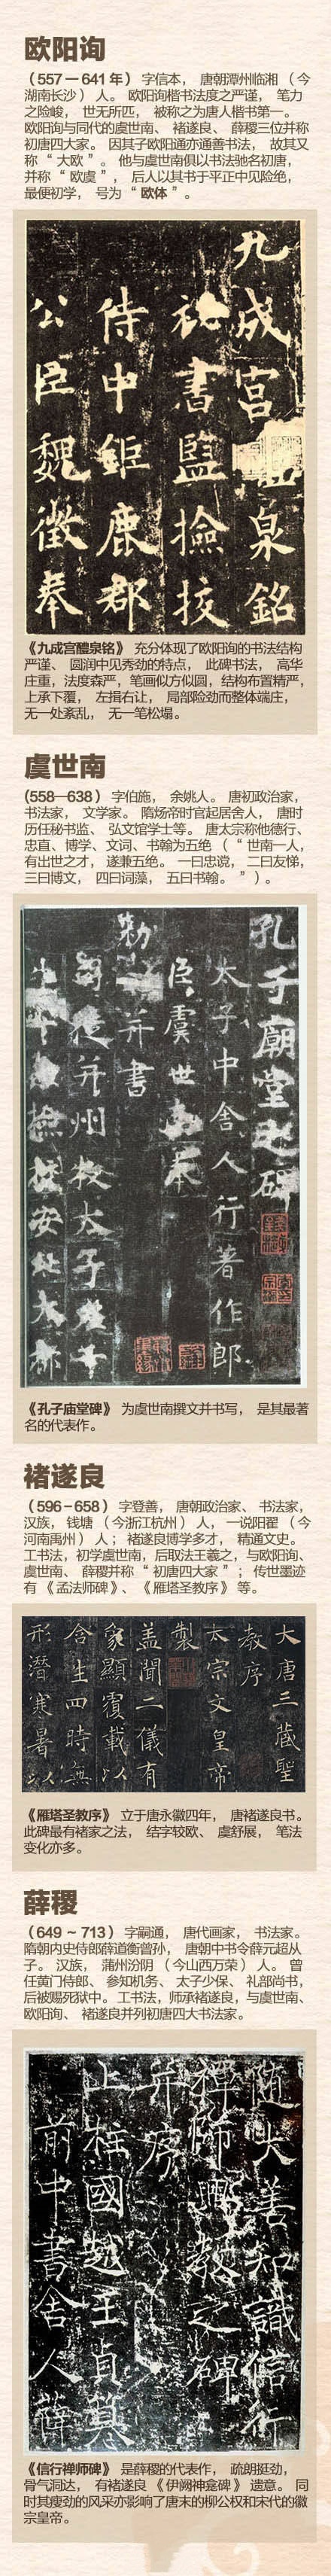 欧阳询
（557 — 641 年） 字信本， 唐朝潭州临湘 （今
湖南长沙） 人。 欧阳询楷书法度之严谨， 笔力
之险峻， 世无所匹， 被称之为唐人楷书第一。
欧阳询与同代的虞世南、 褚遂良、 薛稷三位并称
初唐四大家。 因其子欧阳通亦通善书法， 故其又
称 “ 大欧 ” 。 他与虞世南俱以书法驰名初唐，
并称 “ 欧虞 ” ， 后人以其书于平正中见险绝，
最便初学， 号为 “ 欧体 ” 。
九成宫
泉銘
祕書監撿挍
侍中鉅鹿郡
公臣魏徵奉
《九成宫醴泉铭》 充分体现了欧阳询的书法结构
严谨、 圆润中见秀劲的特点， 此碑书法， 高华
庄重， 法度森严， 笔画似方似圆， 结构布置精严，
上承下覆， 左揖右让， 局部险劲而整体端庄，
无一处紊乱， 无一笔松塌。
虞世南
(558—638 ） 字伯施， 余姚人。 唐初政治家，
书法家， 文学家。 隋炀帝时官起居舍人， 唐时
历任秘书监、 弘文馆学士等。 唐太宗称他德行、
忠直、 博学、 文词、 书翰为五绝 （ “ 世南一人，
有出世之才， 遂兼五绝。 一曰忠谠， 二曰友悌，
三曰博文， 四曰词藻， 五曰书翰。 ” ） 。
孔子廟堂之碑
太子中舍人行著作郎
臣虞世南奉
勑
并書
并州牧大子
安
《孔子庙堂碑》 为虞世南撰文并书写， 是其最著
名的代表作。
褚遂良
（596 – 658） 字登善， 唐朝政治家、 书法家，
汉族， 钱塘 （今浙江杭州） 人， 一说阳翟 （今
河南禹州） 人； 褚遂良博学多才， 精通文史。
工书法， 初学虞世南， 后取法王羲之， 与欧阳询、
虞世南、 薛稷并称 “ 初唐四大家 ” ； 传世墨迹
有 《孟法师碑》 、 《雁塔圣教序》 等。
大唐三藏聖
教序
太宗文皇帝
製
蓋聞二儀有
象顯覆載以
含生四時無
形潛寒暑以
《雁塔圣教序》 立于唐永徽四年， 唐褚遂良书。
此碑最有褚家之法， 结字较欧、 虞舒展， 笔法
变化亦多。
薛稷
（649 ~ 713） 字嗣通， 唐代画家， 书法家。
隋朝内史侍郎薛道衡曾孙， 唐朝中书令薛元超从
子。 汉族， 蒲州汾阴 （今山西万荣） 人。 曾
任黄门侍郎、 参知机务、 太子少保、 礼部尚书，
后被赐死狱中。 工书法， 师承褚遂良， 与虞世南、
欧阳询、 褚遂良并列初唐四大书法家。
随大善知識信行
禪師興教之碑
并序
上柱國越王貞撰
前中書舍人薛
《信行禅师碑》 是薛稷的代表作， 疏朗挺劲，
骨气洞达， 有褚遂良 《伊阙神龛碑》 遗意。 同
时其瘦劲的风采亦影响了唐末的柳公权和宋代的徽
宗皇帝。